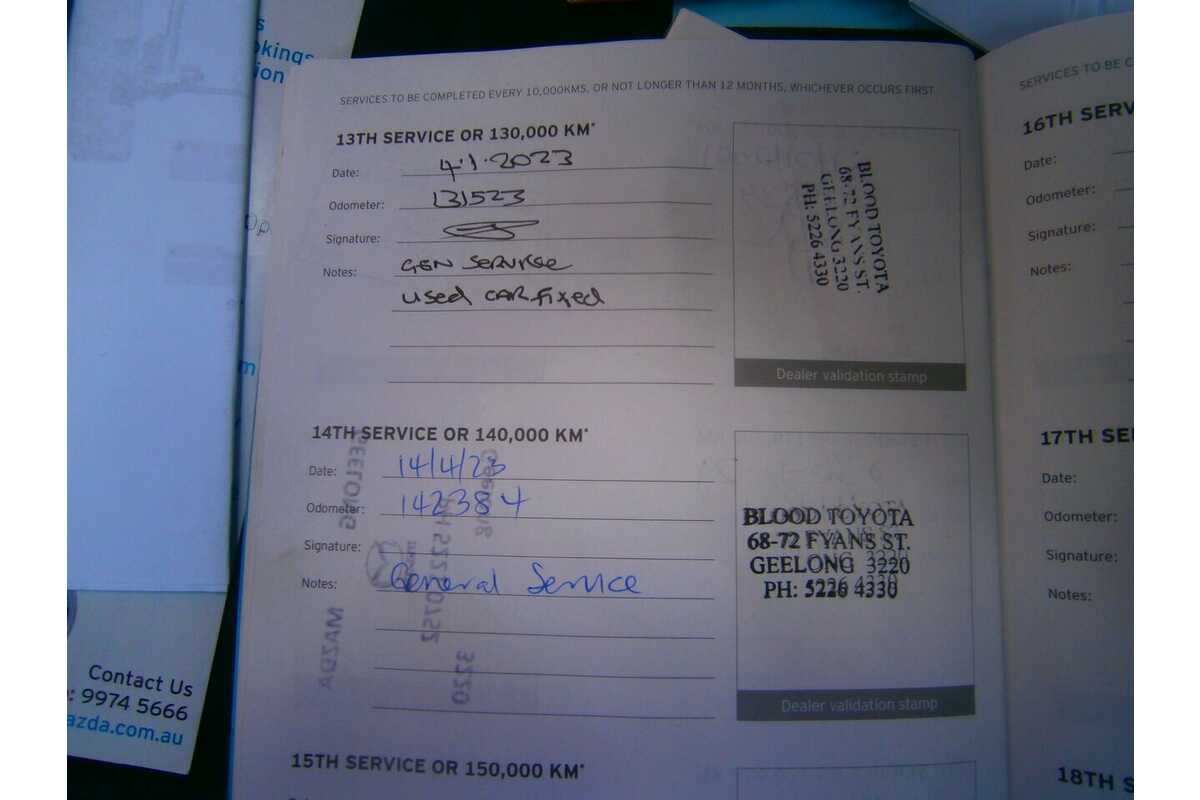 s
okings
ion
Op
m
Contact Us
: 9974 5666
azda.com.au
SERVICES TO BE COMPLETED EVERY 10,000KMS, OR NOT LONGER THAN 12 MONTHS, WHICHEVER OCCURS FIRST
13TH SERVICE OR 130,000 KM*
Date: 4.1.2023
Odometer: 131523
Signature:
Notes: GEN SERVICE
USED CAR FIXED
BLOOD TOYOTA
68-72 FYANS ST.
GEELONG 3220
PH: 5226 4330
Dealer validation stamp
14TH SERVICE OR 140,000 KM*
Date: 14/4/23
Odometer: 142384
Signature:
Notes: General Service
BLOOD TOYOTA
68-72 FYANS ST.
GEELONG 3220
PH: 5226 4330
Dealer validation stamp
GEELONG
MAZDA
3220
15TH SERVICE OR 150,000 KM*
SERVICES TO BE C
16TH SERV
Date:
Odometer:
Signature:
Notes:
17TH SE
Date:
Odometer:
Signature:
Notes:
18TH S